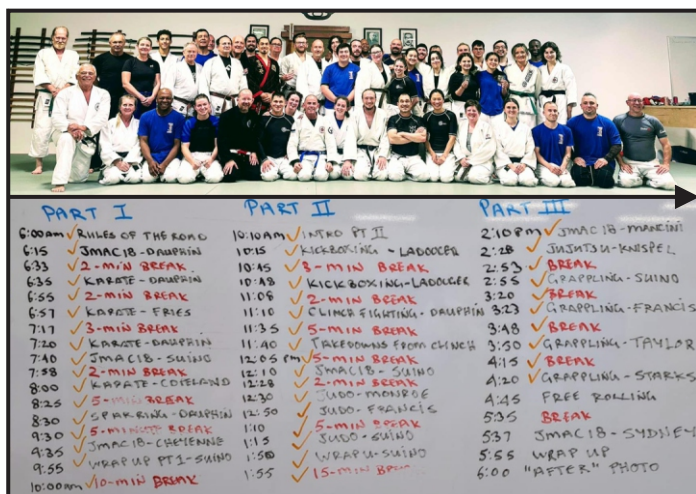 PART I
6:00am ✓ RULES OF THE ROAD
6:15 ✓ JMAC18-DAUPHIN
6:33 ✓ 2-MIN BREAK
6:35 ✓ KARATE-DAUPHIN
6:55 ✓ 2-MIN BREAK
6:57 ✓ KARATE-FRIES
7:17 ✓ 3-MIN BREAK
7:20 ✓ KARATE-DAUPHIN
7:40 ✓ JMAC18-SUINO
7:58 ✓ 2-MIN BREAK
8:00 ✓ KARATE-COPELAND
8:25 ✓ 5-MIN BREAK
8:30 ✓ SPARRING-DAUPHIN
9:30 ✓ 5-MINUTE BREAK
9:35 ✓ JMAC18-CHEYENNE
9:55 ✓ WRAP UP PT1-SUINO
10:00am ✓ 10-MIN BREAK
PART II
10:10am ✓ INTRO PT II
10:15 ✓ KICKBOXING-LADOUCER
10:45 ✓ 3-MIN BREAK
10:48 ✓ KICKBOXING-LADOUCER
11:08 ✓ 2-MIN BREAK
11:10 ✓ CLINCH FIGHTING-DAUPHIN
11:35 ✓ 5-MIN BREAK
11:40 ✓ TAKEDOWNS FROM CLINCH
12:05 pm ✓ 5-MIN BREAK
12:10 ✓ JMAC18-SUINO
12:28 ✓ 2-MIN BREAK
12:30 ✓ JUDO-MONROE
12:50 ✓ JUDO-FRANCIS
1:10 ✓ 5-MIN BREAK
1:15 ✓ JUDO-SUINO
1:50 ✓ WRAP U-SUINO
1:55 ✓ 15-MIN
PART III
2:10pm ✓ JMAC18-MANCINI
2:28 ✓ JUJUTSU-KNISPEL
2:53 ✓ BREAK
2:55 ✓ GRAPPLING-SUINO
3:20 ✓ BREAK
3:23 ✓ GRAPPLING-FRANCIS
3:48 ✓ BREAK
3:50 ✓ GRAPPLING-TAYLOR
4:15 ✓ BREAK
4:20 ✓ GRAPPLING-STARKS
4:45 FREE ROLLING
5:35 BREAK
5:37 JMAC18-SYDNEY
5:55 WRAP UP
6:00 "AFTER" PHOTO